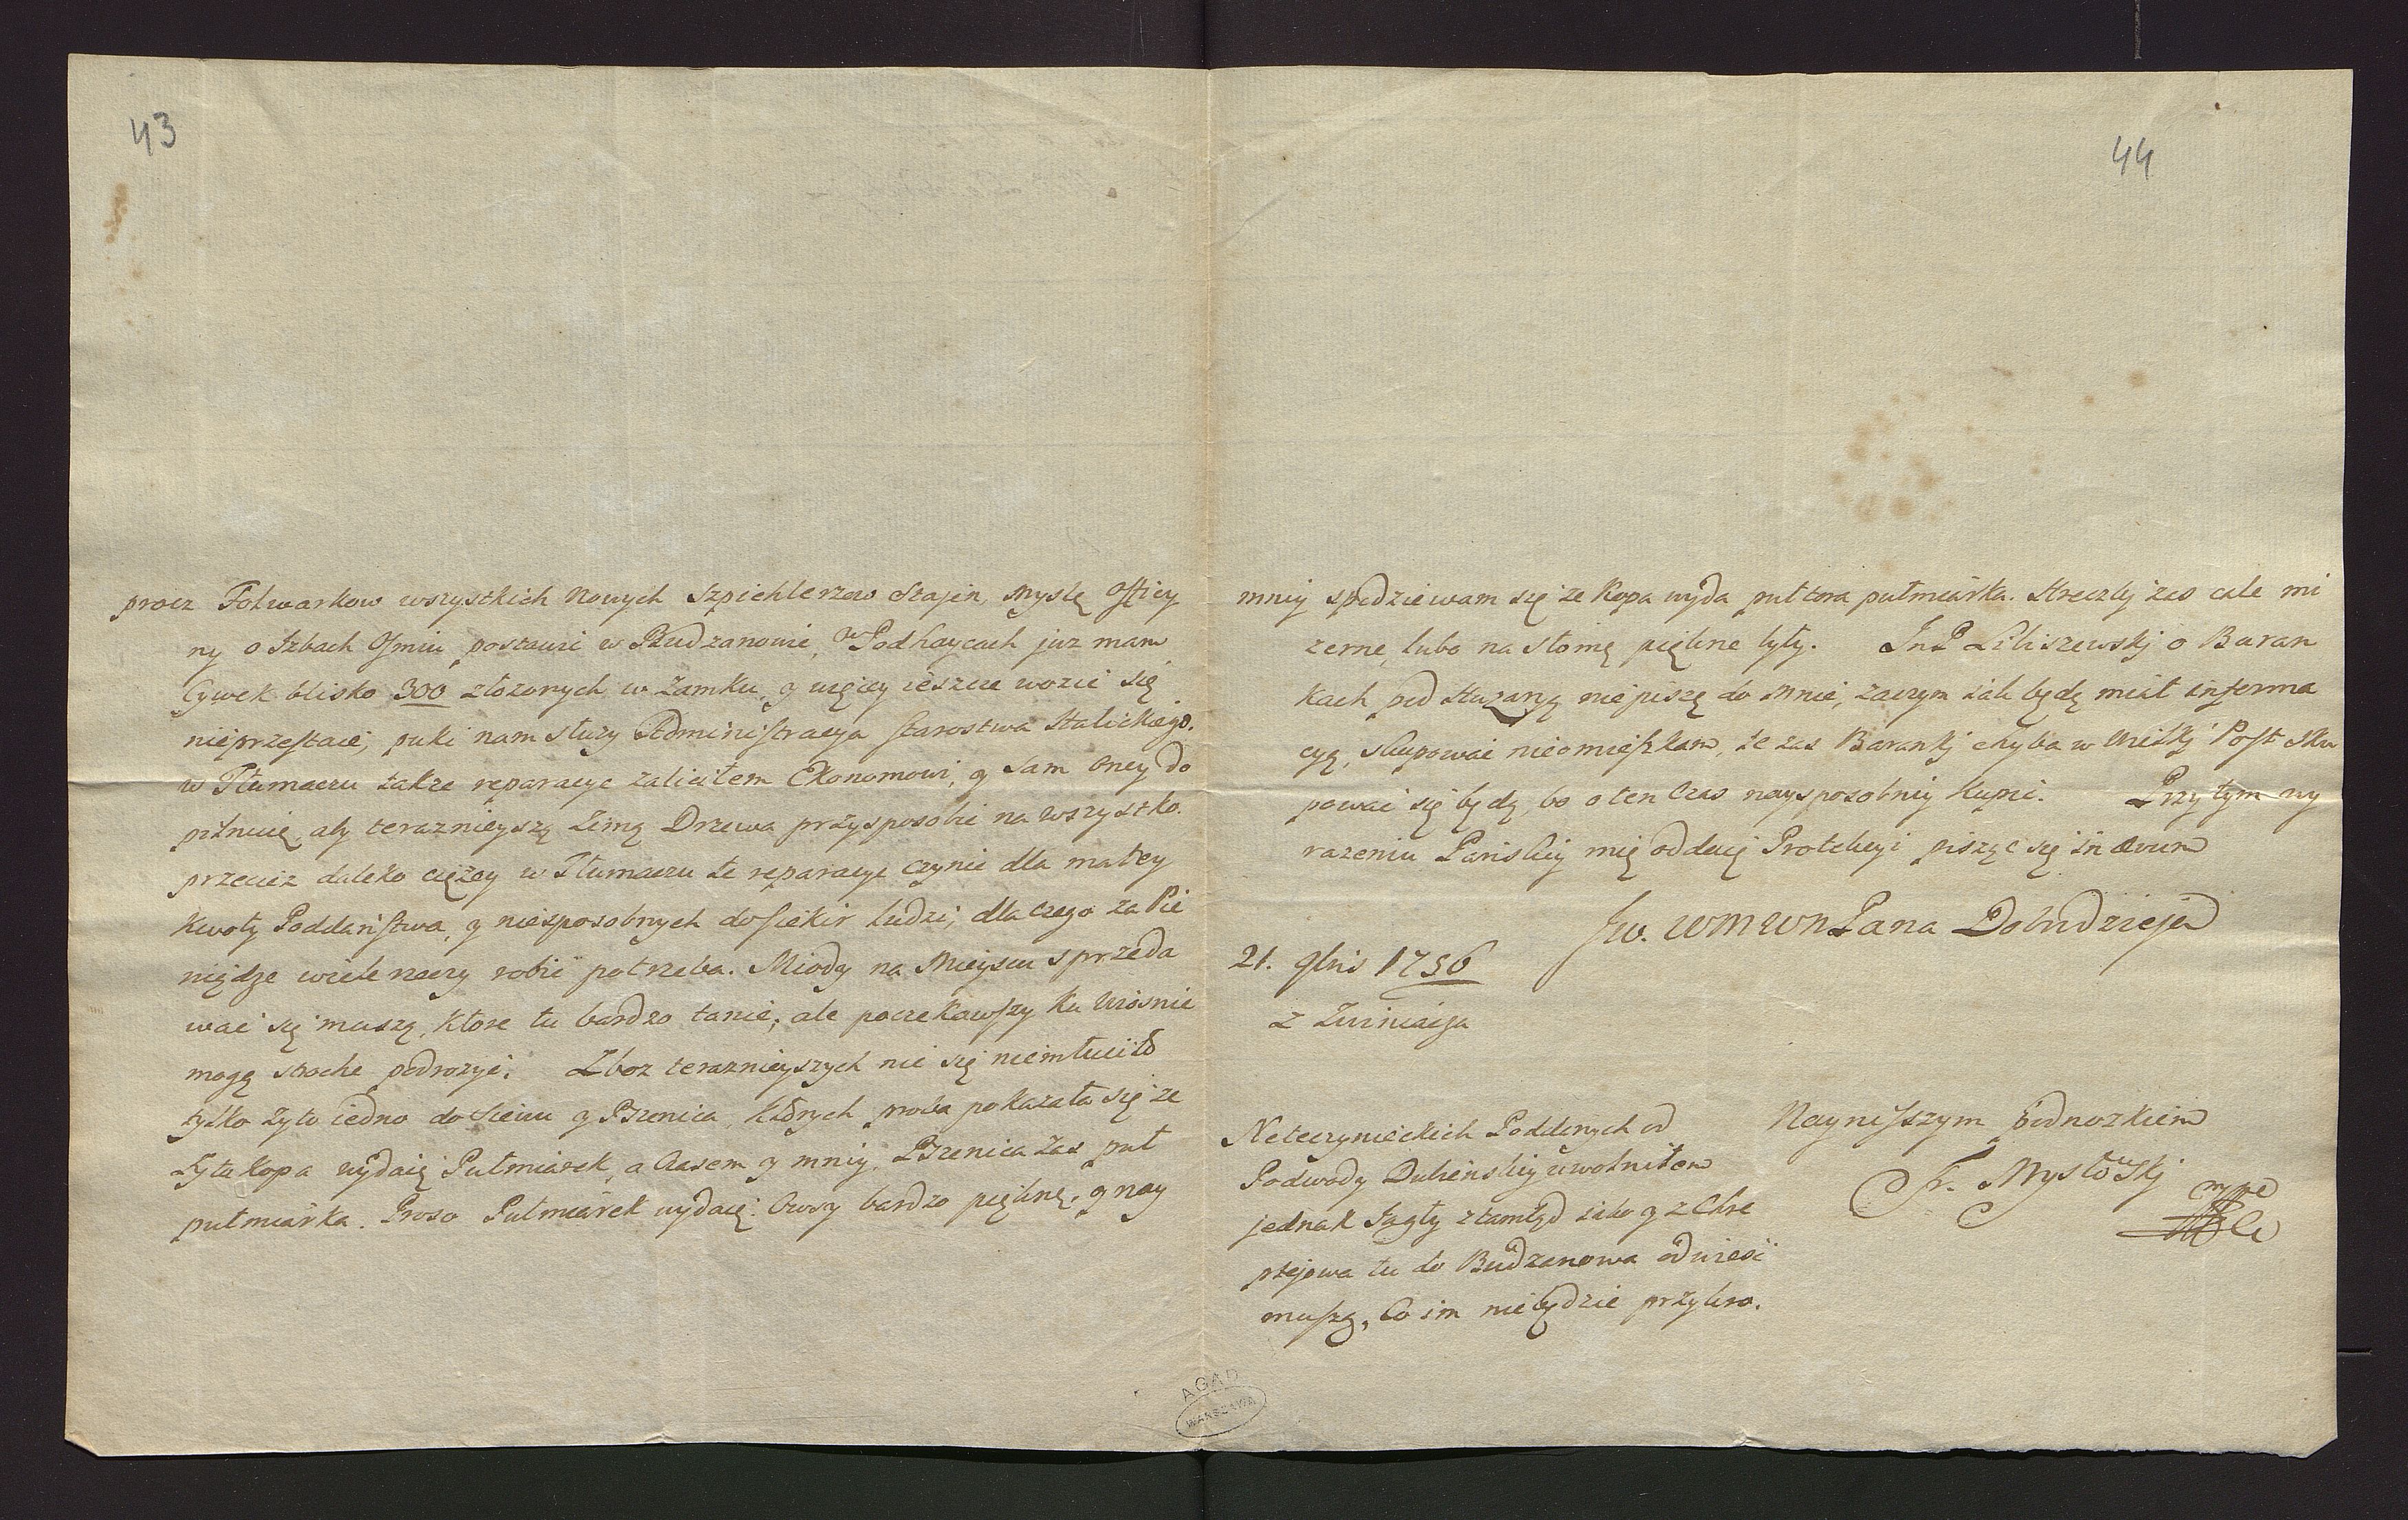 43
procz Folwarkow wszystkich Nowych Szpichlerzow Stajen, myslę Officy
ny o Izbach Osmiu postawić w Budzanowie, W Podhaycach juz mam
Cywek blisko 300 złozonych w Zamku, y więcey ieszcze wozić się
nieprzestaie, puki nam słuzy Administracya Starostwa Halickiego.
w Tłumaczu takze reparacye zaliciłem Ekonomowi, y sam oney do
pilnuię, aby teraznieyszą Zimą Drzewa przysposobił na wszystko.
przeciez daleko ciężey w Tłumaczu te reparacye czynić dla małey
kwoty Poddaństwa, y niesposobnych do siekir ludzi, dla czego za Pie
niądze wiele rzeczy robić potrzeba. Miody na Mieyscu sprzeda
wać się muszą, ktore tu bardzo tanie, ale poczekawszy ku Wiosnie
mogą troche podrożyć. Zboz teraznieyszych nic się niemłuciło
tylko Zyto iedno do siewu y Pszenica, ktorych proba pokazała się ze
Zyta kopa wydaię Pułmiarek, a Czasem y mniy, Pszenica zas puł
pułmiarka. Proso Pułmiarek wydaię. Owsy bardzo piękne, y nay
44
mniy spodziewam się ze Kopa wyda puł tora pułmiarka. Hreczky zas cale mi
zerne, lubo na słomę piękne były. Im P Liliszewskj o Baran
kach pod niepiszę do mnie, zaczym iak będę miał informa
cyą, skupować nieomieszkam, ze zas Barankj chyba w Wielkj Post sku
pować się będą, bo o ten Czas naysposobniy kupić. Przy tym wy
razeniu Pańskiy mię oddaię Protekcyi pisząc się in ævum
Jw. WM WM Pana Dobrodzieja
21. 9bris 1756
z Zwiniacza
Nayniższym podnozkiem
Fr. Mysłowskj mppa
Neteczynieckich Poddanych od
Podwody Dubieńskiy uwolniłem
jednak Jagły ztamtąd iako y z Chre
ptejowa tu do Budzanowa odwiesć
muszą, Co im niebędzie przykro.
AGAD
WARSZAWA